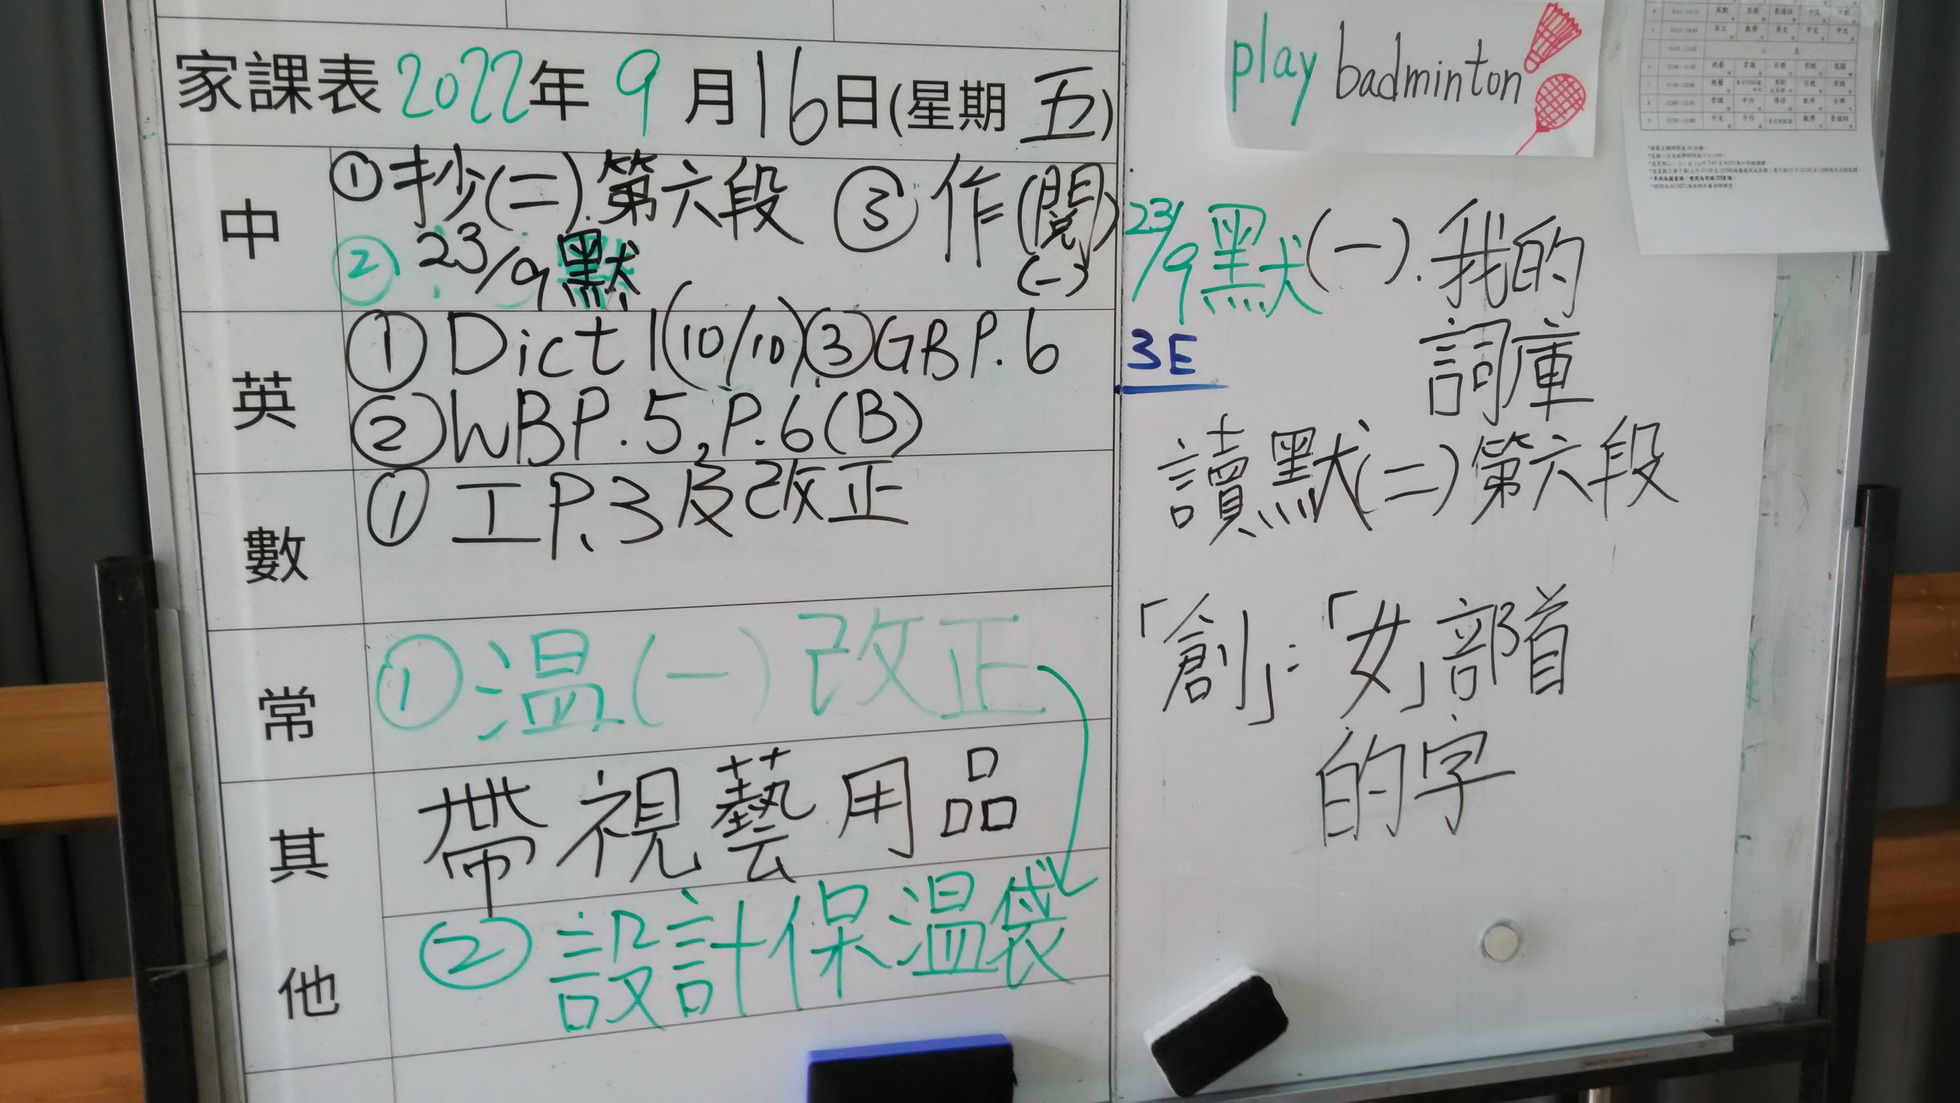 家課表 2022年 9月16日(星期五)
中
①抄(二).第六段 ③作(閱)(一)
② 23/9默
英
①Dict 1(10/10)③GBP.6
②WBP.5,P.6(B)
數
①工P.3及改正
常
①溫(一)改正
其他
帶視藝用品
②設計保溫袋
play badminton
23/9默(一).我的
詞庫
3E
讀默(二)第六段
「創」:「女」部首
的字